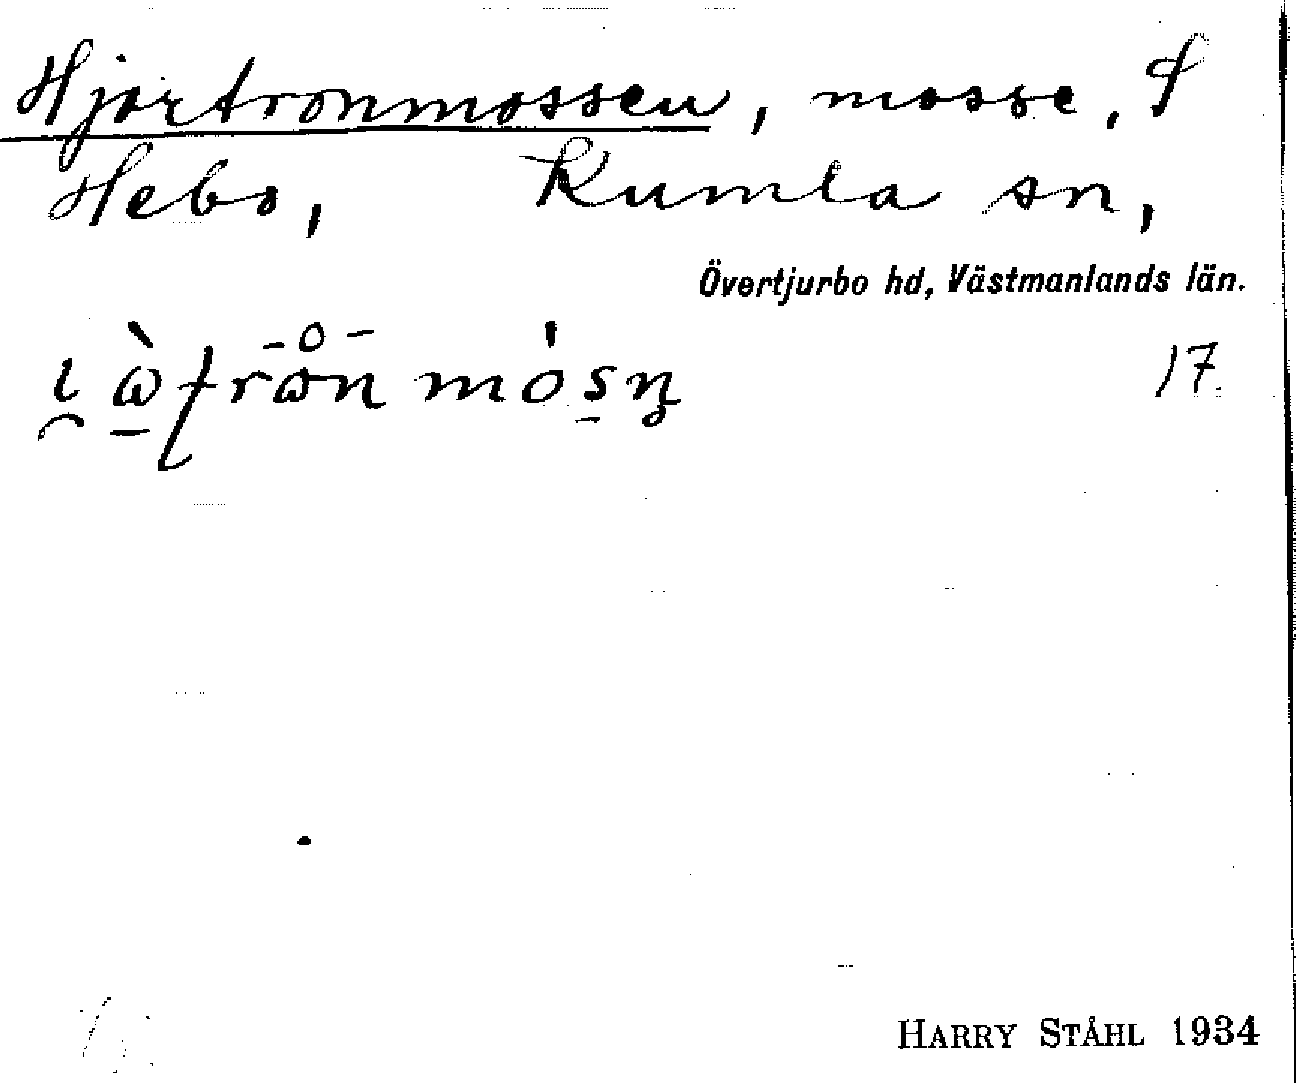 Hjortronmossen, mosse, S
Hebo, Kumla sn,
Övertjurbo hd, Västmanlands län.
17.
HARRY STÅHL 1934